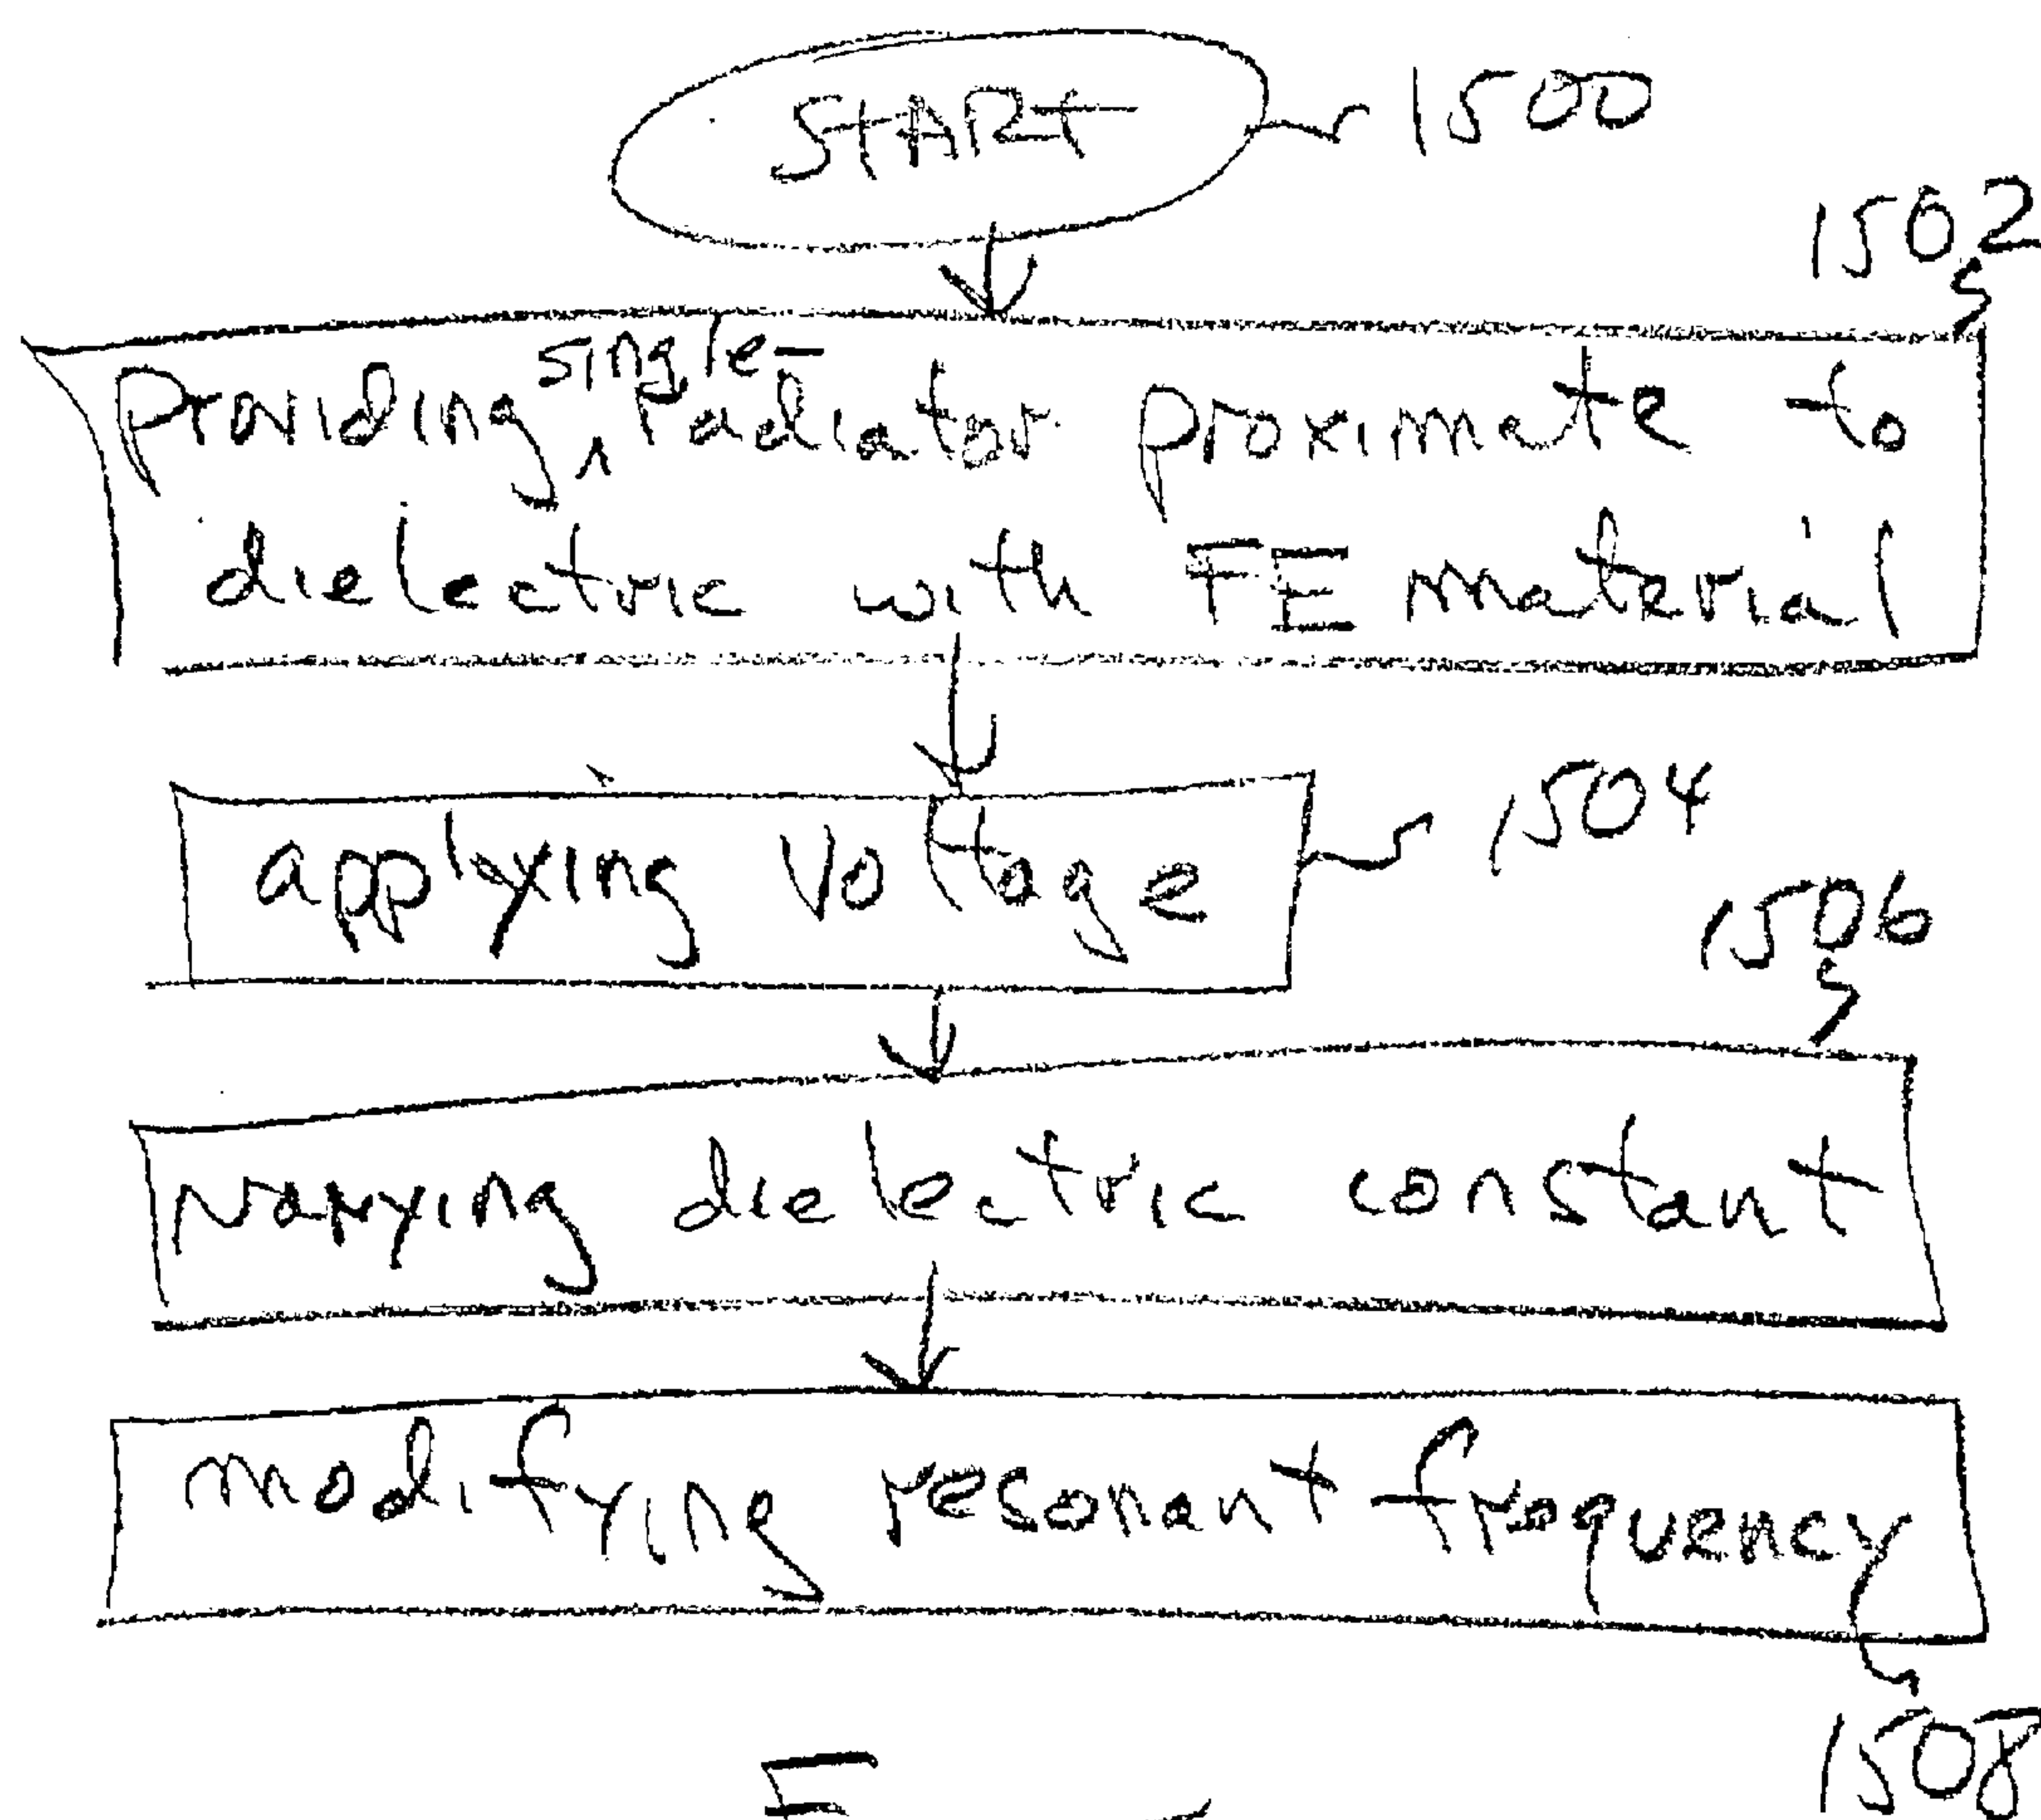 START 1500
1502
Providing single-radiator proximate to
dielectric with FE material
applying Voltage 1504
1506
varying dielectric constant
modifying resonant frequency
1508